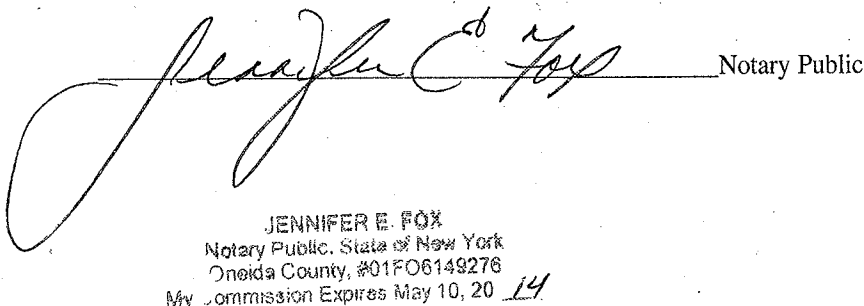 Jennifer E Fox Notary Public
JENNIFER E. FOX
Notary Public, State of New York
Oneida County, #01FO6149276
My Commission Expires May 10, 20 14